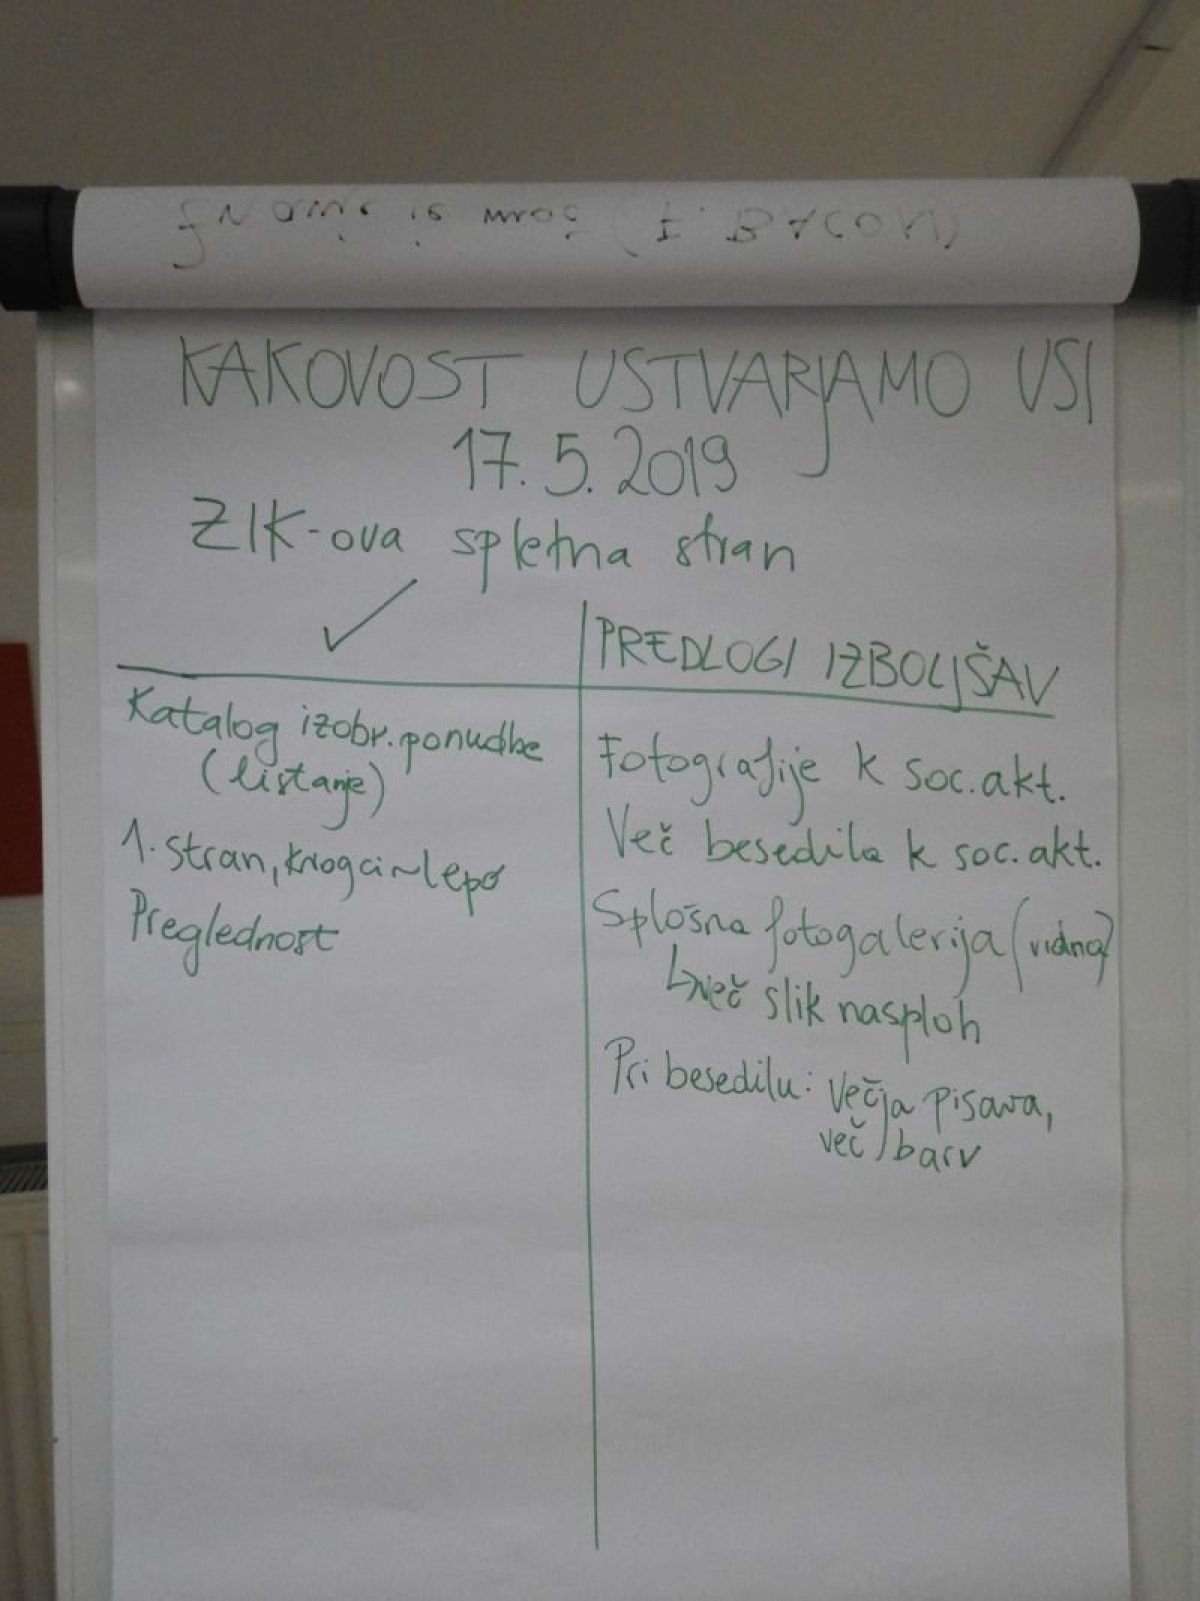 (F. BACON)
KAKOVOST USTVARJAMO VSI
17.5.2019
ZIK-ova spletna stran
✓
Katalog izobr. ponudbe
(listanje)
1. stran, krogci~lepo
Preglednost
PREDLOGI IZBOLJŠAV
Fotografije k soc. akt.
Več besedila k soc. akt.
Splošna fotogalerija (vidna)
↳več slik nasploh
Pri besedilu: večja pisava,
več barv